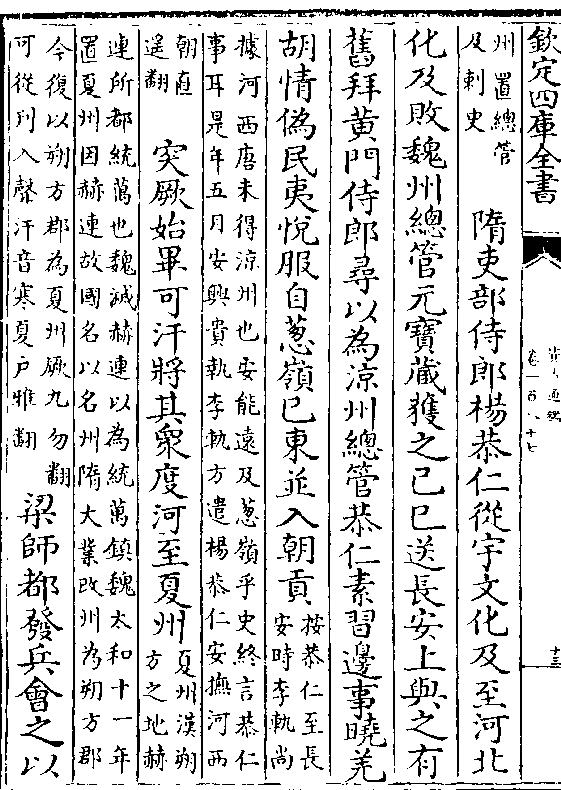 欽定四庫全書
資治通鑑
卷一百八十七
十三
州置總管
及刺史
隋吏部侍郎楊恭仁從宇文化及至河北
化及敗魏州總管元寶藏獲之己巳送長安上與之有
舊拜黄門侍郎尋以為涼州總管恭仁素習邊事曉羌
胡情偽民夷悅服自葱嶺已東並入朝貢
按恭仁至長
安時李軌尚
據河西唐未得涼州也安能遠及葱嶺乎史終言恭仁
事耳是年五月安興貴執李軌方遣楊恭仁安撫河西
朝直
遥翻
突厥始畢可汗將其衆度河至夏州
夏州漢朔
方之地赫
連所都統萬也魏滅赫連以為統萬鎮魏太和十一年
置夏州因赫連故國名以名州隋大業改州為朔方郡
今復以朔方郡為夏州厥九勿翻
可從刋入聲汗音寒夏户雅翻
梁師都發兵會之以